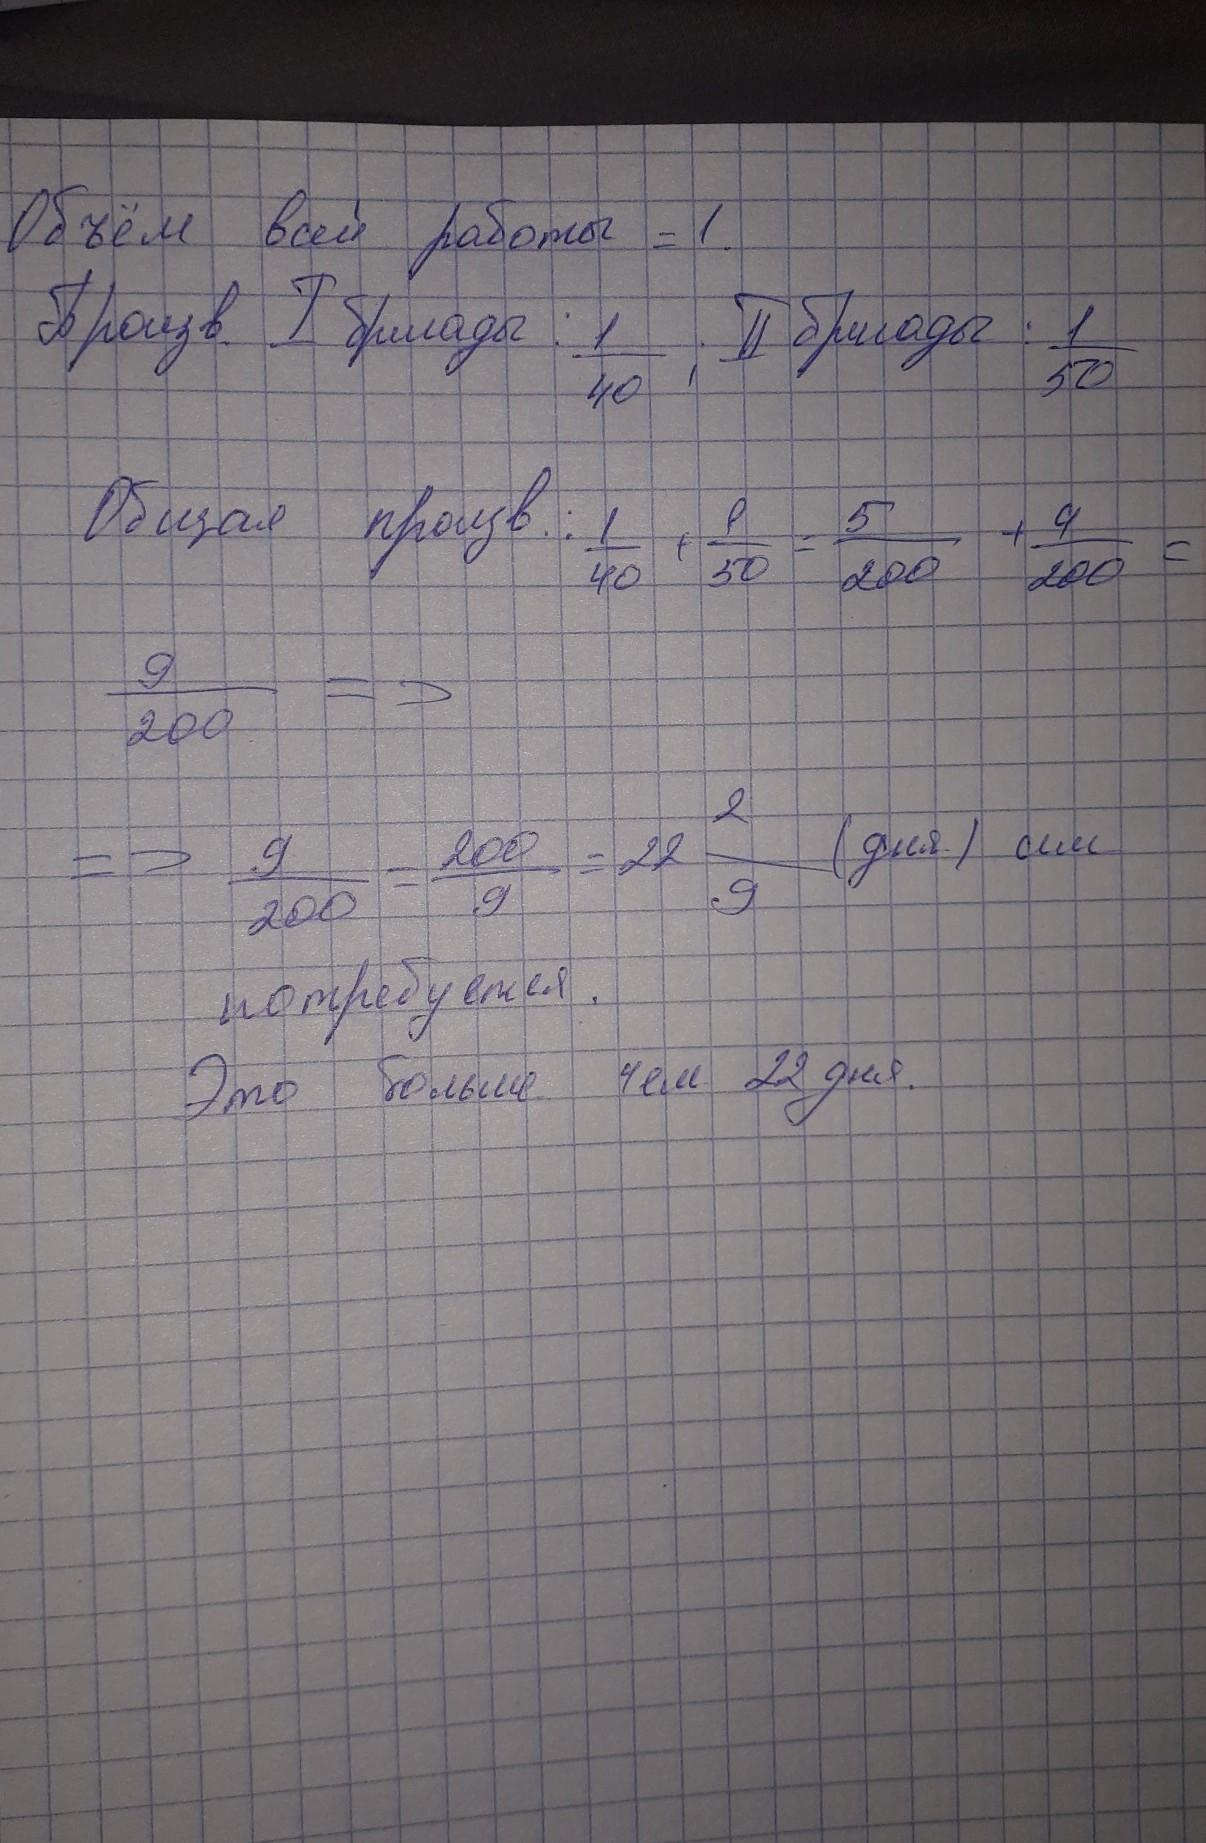 Объём всей работы = 1.
Произв. I бригады: 1/40, II бригады: 1/50
Общая произв.: 1/40 + 1/50 = 5/200 + 4/200 =
9/200 =>
=> 9/200 = 200/9 = 22 2/9 (дня) им
потребуется.
Это больше чем 22 дня.